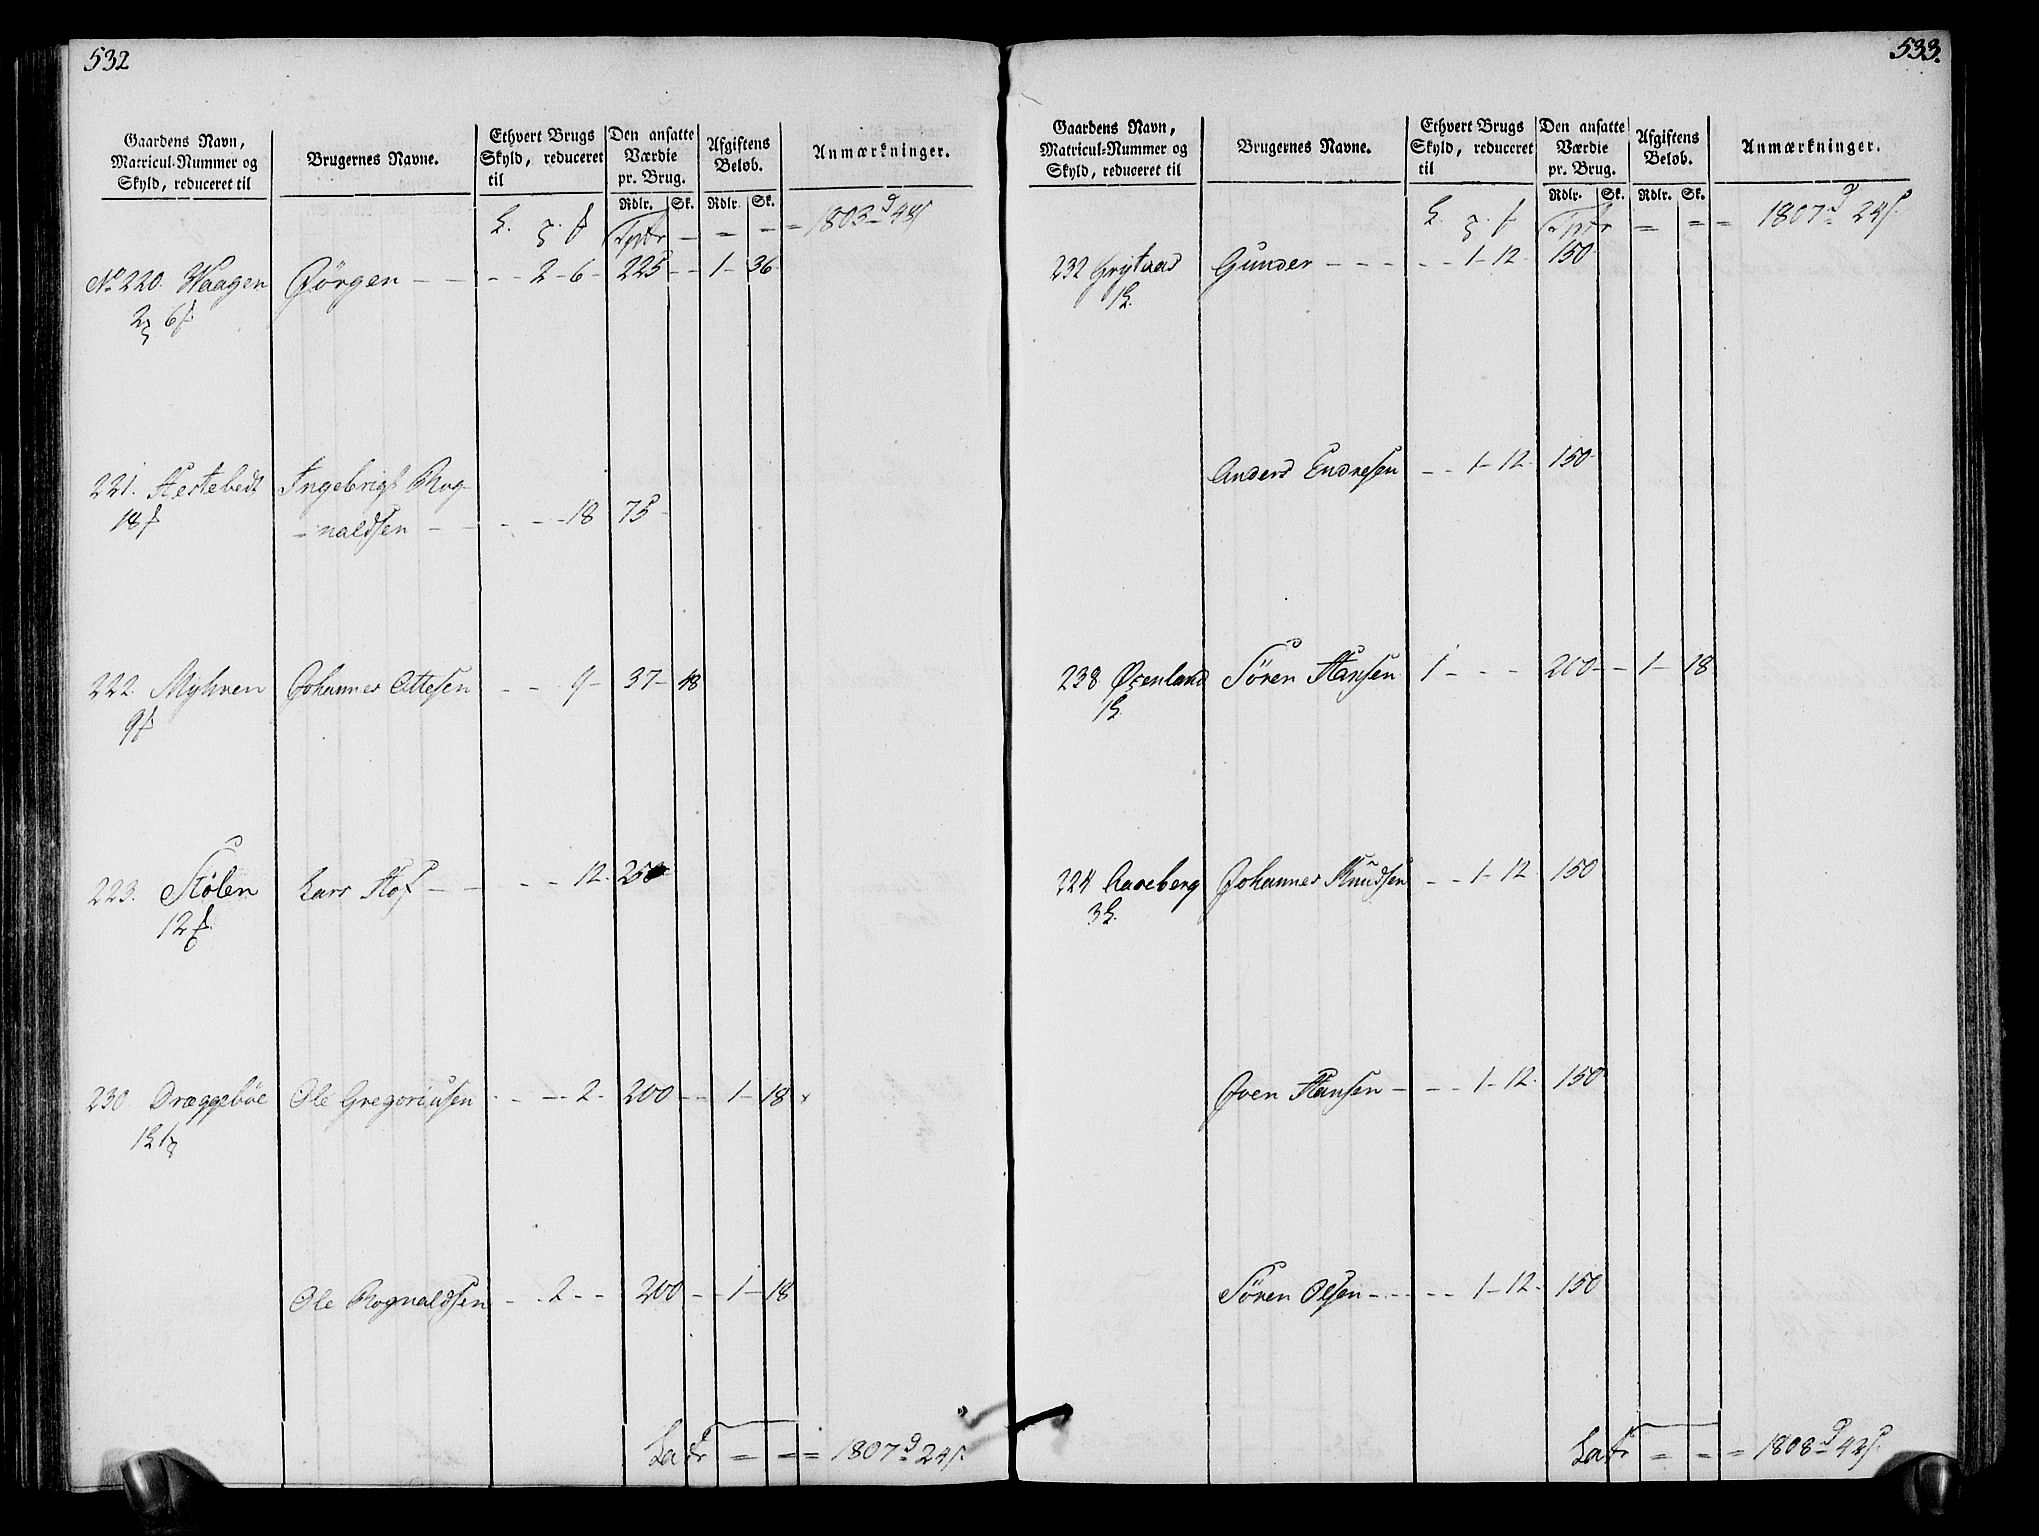 532
Gaardens Navn, Matricul-Nummer og Skyld, reduceret til
Brugernes Navne.
Ethvert Brugs Skyld, reduceret til
Den ansatte Værdie pr. Brug.
Afgiftens Beløb.
Anmærkninger.
Rdlr. Sk. Rdlr. Sk.
Tptr - = - = 1803 d 48 s
No 220. Waagen Jørgen - - - - 2 - 6 - 225 - - 1 - 36
2 6
221. Hestebedt Ingebrigt Rog-
18 - naldsen - - - - - 18 75 -
222. Myhren Johannes Ottesen - - 9 - 37 - 48
9
223. Stølen Lars Hof - - - - 12. 250
12
230 Dræggebøe Ole Gregoriusen - - - 2 - 200 - - 1 - 18
1 1
Ole Rognaldsen - - 2 - - 200 - - 1 - 18
Latr = = = 1807 d 24 s.
533.
Gaardens Navn, Matricul-Nummer og Skyld, reduceret til
Brugernes Navne.
Ethvert Brugs Skyld, reduceret til
Den ansatte Værdie pr. Brug.
Afgiftens Beløb.
Anmærkninger.
Rdlr. Sk. Rdlr. Sk.
Tptr = = = 1807 d 24 s.
232 Grytaas Gunder - - - - - 1 - 12. 150 -
1
Anders Endresen - - 1 - 12. 150 -
238 Øxenland Søren Hansen 1 - - - 200 - - 1 - 18
1
224 Aareberg Johannes Knudsen - - 1 - 12 150
3
Iven Hansen - - - 1 - 12. 150
Søren Olsen - - - - 1 - 12. 150
Latr = = = 1808 d 42 s.